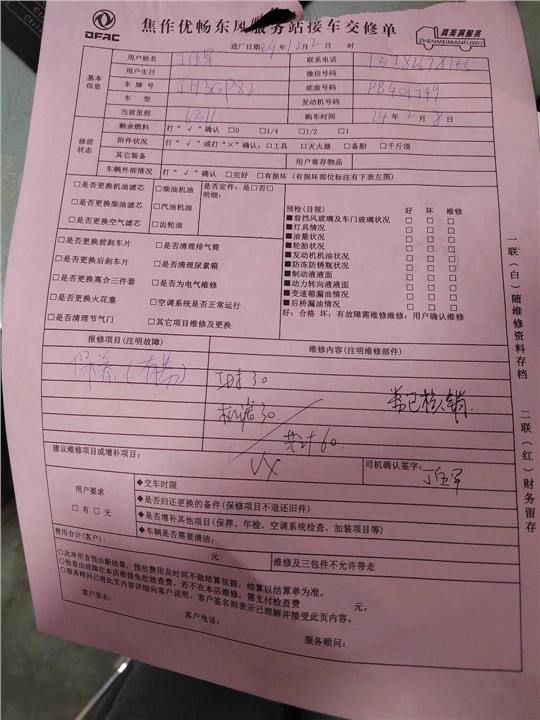 DFAC
焦作优畅东风服务站接车交修单
真美满服务
ZHENMEIMANFUWU
进厂日期 24年12月2日 时
基本信息
用户姓名 联系电话
用户生日 微信号码
车牌号 底盘号码 PB401749
车型 发动机号码
当前里程 6311 购车时间 24年2月8日
修前状态
剩余燃料 打“√”确认 □0 □1/4 □1/2 □1
附件状况 打“√”或打“×”确认:□工具 □灭火器 □备胎 □千斤顶
其它装备 用户寄存物品
车辆外部情况 打“√”确认 □完好 □有损 (有损部位标注有下表左图)
□是否更换机油滤芯 □柴油机油 是否定件: 是□否□
□是否更换柴油滤芯 □汽油机油 明细:
□是否更换空气滤芯 □齿轮油
□是否更换前刹车片 □是否清理排气筒
□是否更换后刹车片 □是否清理尿素箱
□是否更换离合三件套 □是否为电气维修
□是否更换火花塞 □空调系统是否正常运行
□是否清理节气门 □其它项目维修及更换
预检(目视) 好 坏 维修
■前挡风玻璃及车门玻璃状况 □ □ □
■灯具情况 □ □ □
■油量状况 □ □ □
■轮胎状况 □ □ □
■发动机机油状况 □ □ □
■防冻防锈瓶状况 □ □ □
■制动液液面 □ □ □
■动力转向液液面 □ □ □
■变速箱漏油情况 □ □ □
■后桥漏油情况 □ □ □
好:合格 坏:有故障需维修维修:用户确认维修
报修项目(注明故障) 维修内容(注明维修部件)
保养 工时30
机滤30.
共计60.
已核销
建议维修项目或增补项目:
司机确认签字:
用户要求
□有 □无
◆交车时限
◆是否归还更换的备件(保修项目不退还旧件)
◆是否增补其他项目(保养、年检、空调系统检查、加装项目等)
◆车辆是否需要清油:
费用合计(客户): 元 维修及三包件不允许带走
○此单所含预诊断结果,预估费用及时间不做结算依据,结算以结算单为准。
○检查出故障在本店维修免收检查费,若不在本店维修,需支付检查费 元。
○服务顾问已将此页内容详细向客户说明,客户签名则表示已理解并接受此页内容。
客户签名:
客户电话:
服务顾问:
一联(白)随维修资料存档
二联(红)财务留存